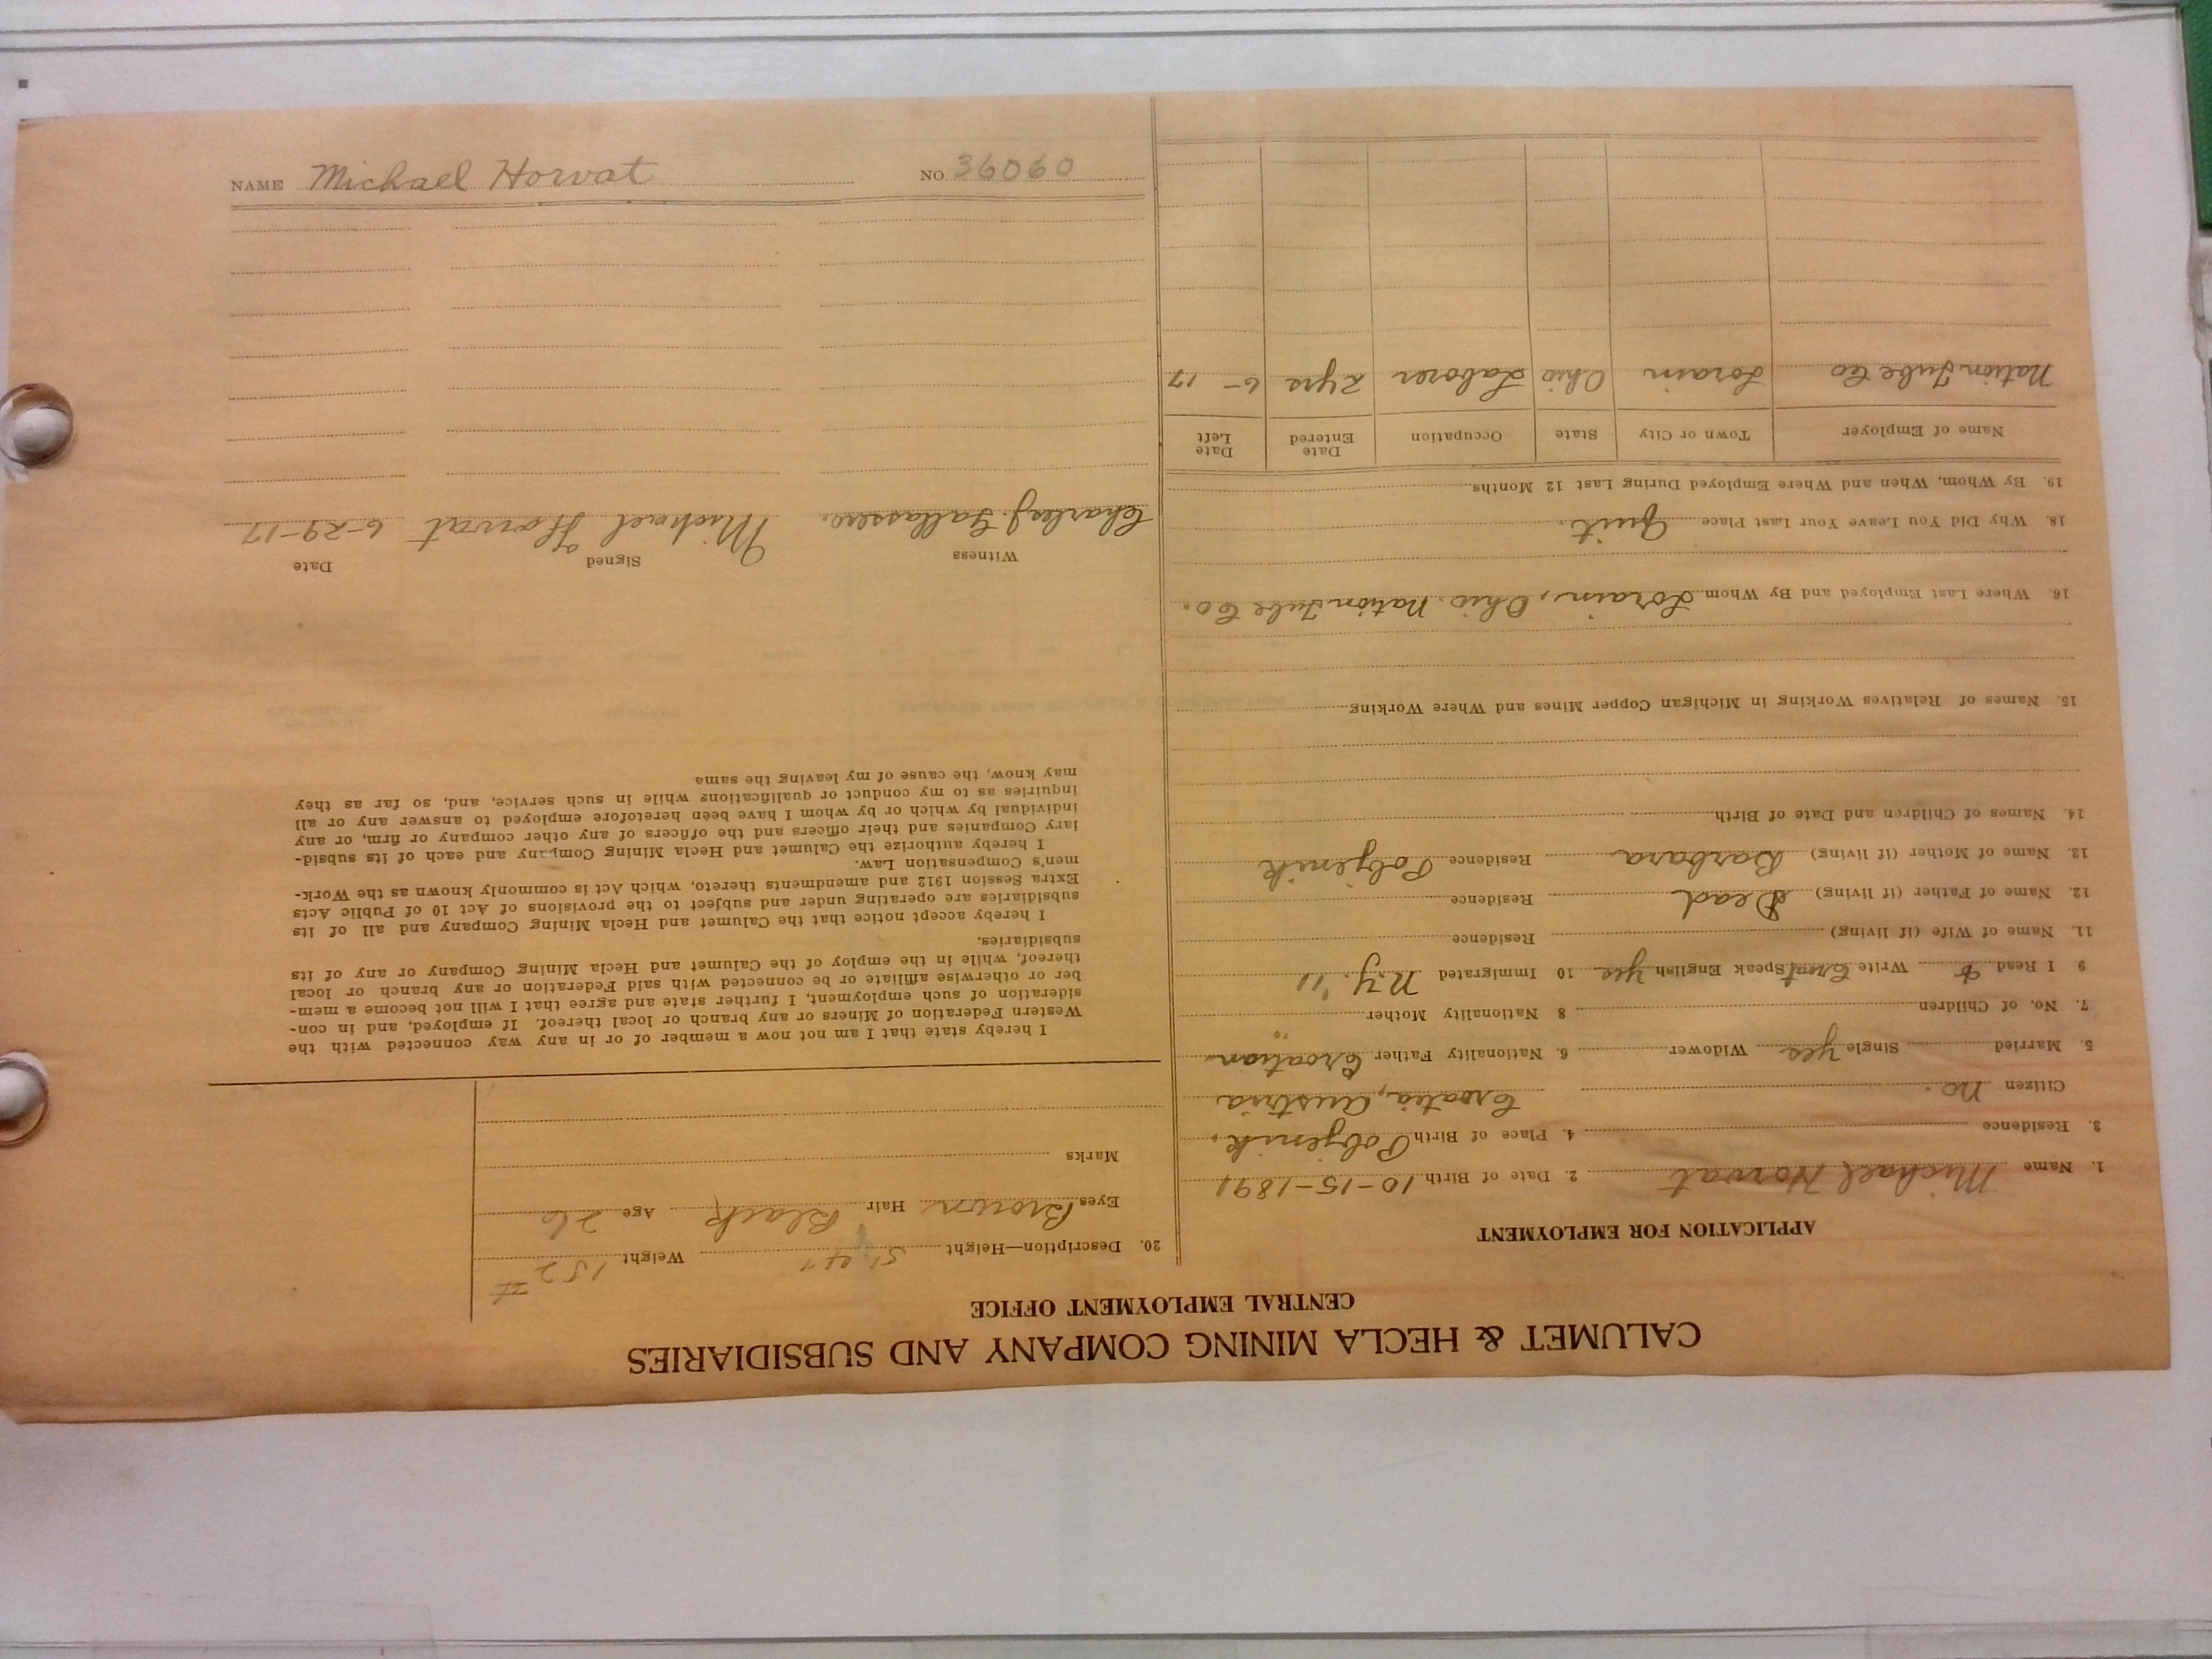 CALUMET & HECLA MINING COMPANY AND SUBSIDIARIES
CENTRAL EMPLOYMENT OFFICE
APPLICATION FOR EMPLOYMENT
1. Name Michael Horvat 2. Date of Birth 10-15-1891
3. Residence 4. Place of Birth Pobjenik,
Citizen no. Croatia, Austria
5. Married Single yes Widower 6. Nationality Father Croatian
7. No. of Children 8 Nationality Mother "
9 I Read & Write Croat Speak English yes 10 Immigrated N.Y. '11
11. Name of Wife (if living) Residence
12. Name of Father (if living) Dead Residence
13. Name of Mother (if living) Barbara Residence Pobjenik
14. Names of Children and Date of Birth
15. Names of Relatives Working in Michigan Copper Mines and Where Working
16. Where Last Employed and By Whom Lorain, Ohio. Nation Tube Co.
18. Why Did You Leave Your Last Place Quit.
19. By Whom, When and Where Employed During Last 12 Months
Name of Employer Town or City State Occupation Date Entered Date Left
Nation Tube Co Lorain Ohio Laborer 2 yrs 6-17
20. Description—Height 5' 4" Weight 152 #
Eyes Brown Hair Black Age 26
Marks
I hereby state that I am not now a member of or in any way connected with the
Western Federation of Miners or any branch or local thereof. If employed, and in con-
sideration of such employment, I further state and agree that I will not become a mem-
ber or otherwise affiliate or be connected with said Federation or any branch or local
thereof, while in the employ of the Calumet and Hecla Mining Company or any of its
subsidiaries.
I hereby accept notice that the Calumet and Hecla Mining Company and all of its
subsidiaries are operating under and subject to the provisions of Act 10 of Public Acts
Extra Session 1912 and amendments thereto, which Act is commonly known as the Work-
men's Compensation Law.
I hereby authorize the Calumet and Hecla Mining Company and each of its subsid-
iary Companies and their officers and the officers of any other company or firm, or any
individual by which or by whom I have been heretofore employed to answer any or all
inquiries as to my conduct or qualifications while in such service, and, so far as they
may know, the cause of my leaving the same
Witness Signed Date
Charles J. Gallasses. Michael Horvat 6-29-17
NAME Michael Horvat NO. 36060